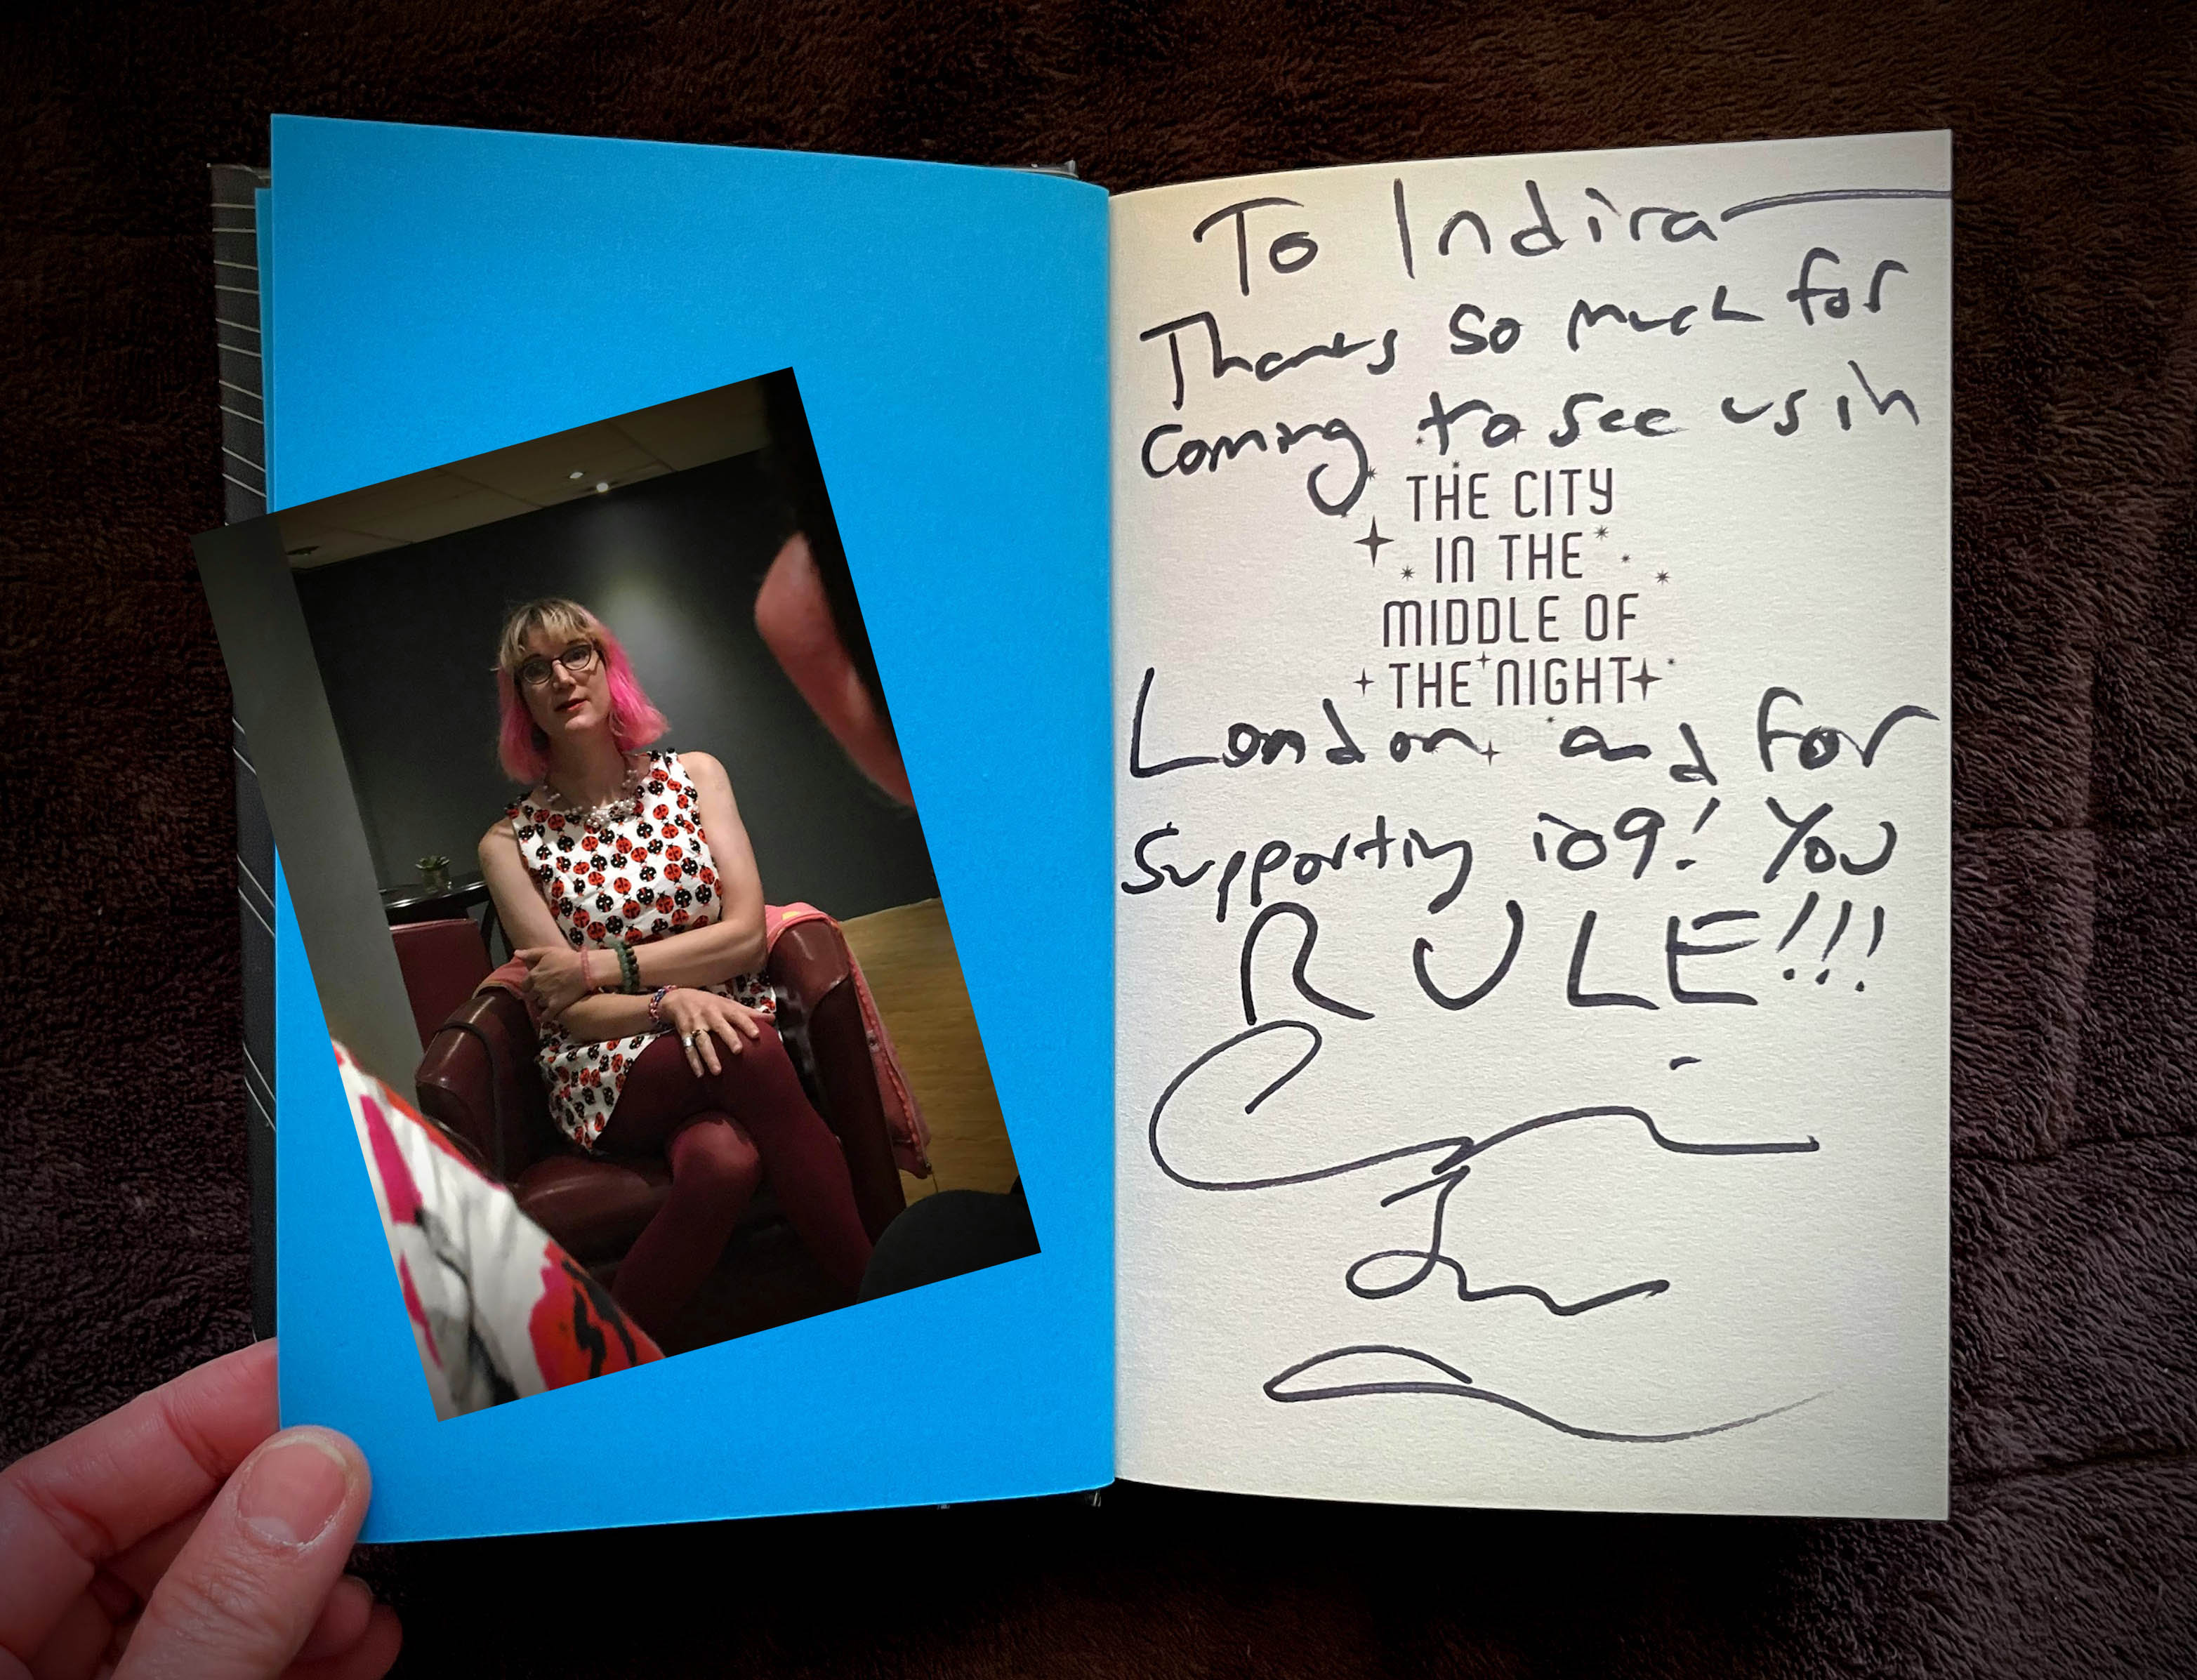 To Indira
Thanks so much for
coming to see us in
THE CITY
IN THE
MIDDLE OF
THE NIGHT
London, and for
supporting io9! You
RULE!!!